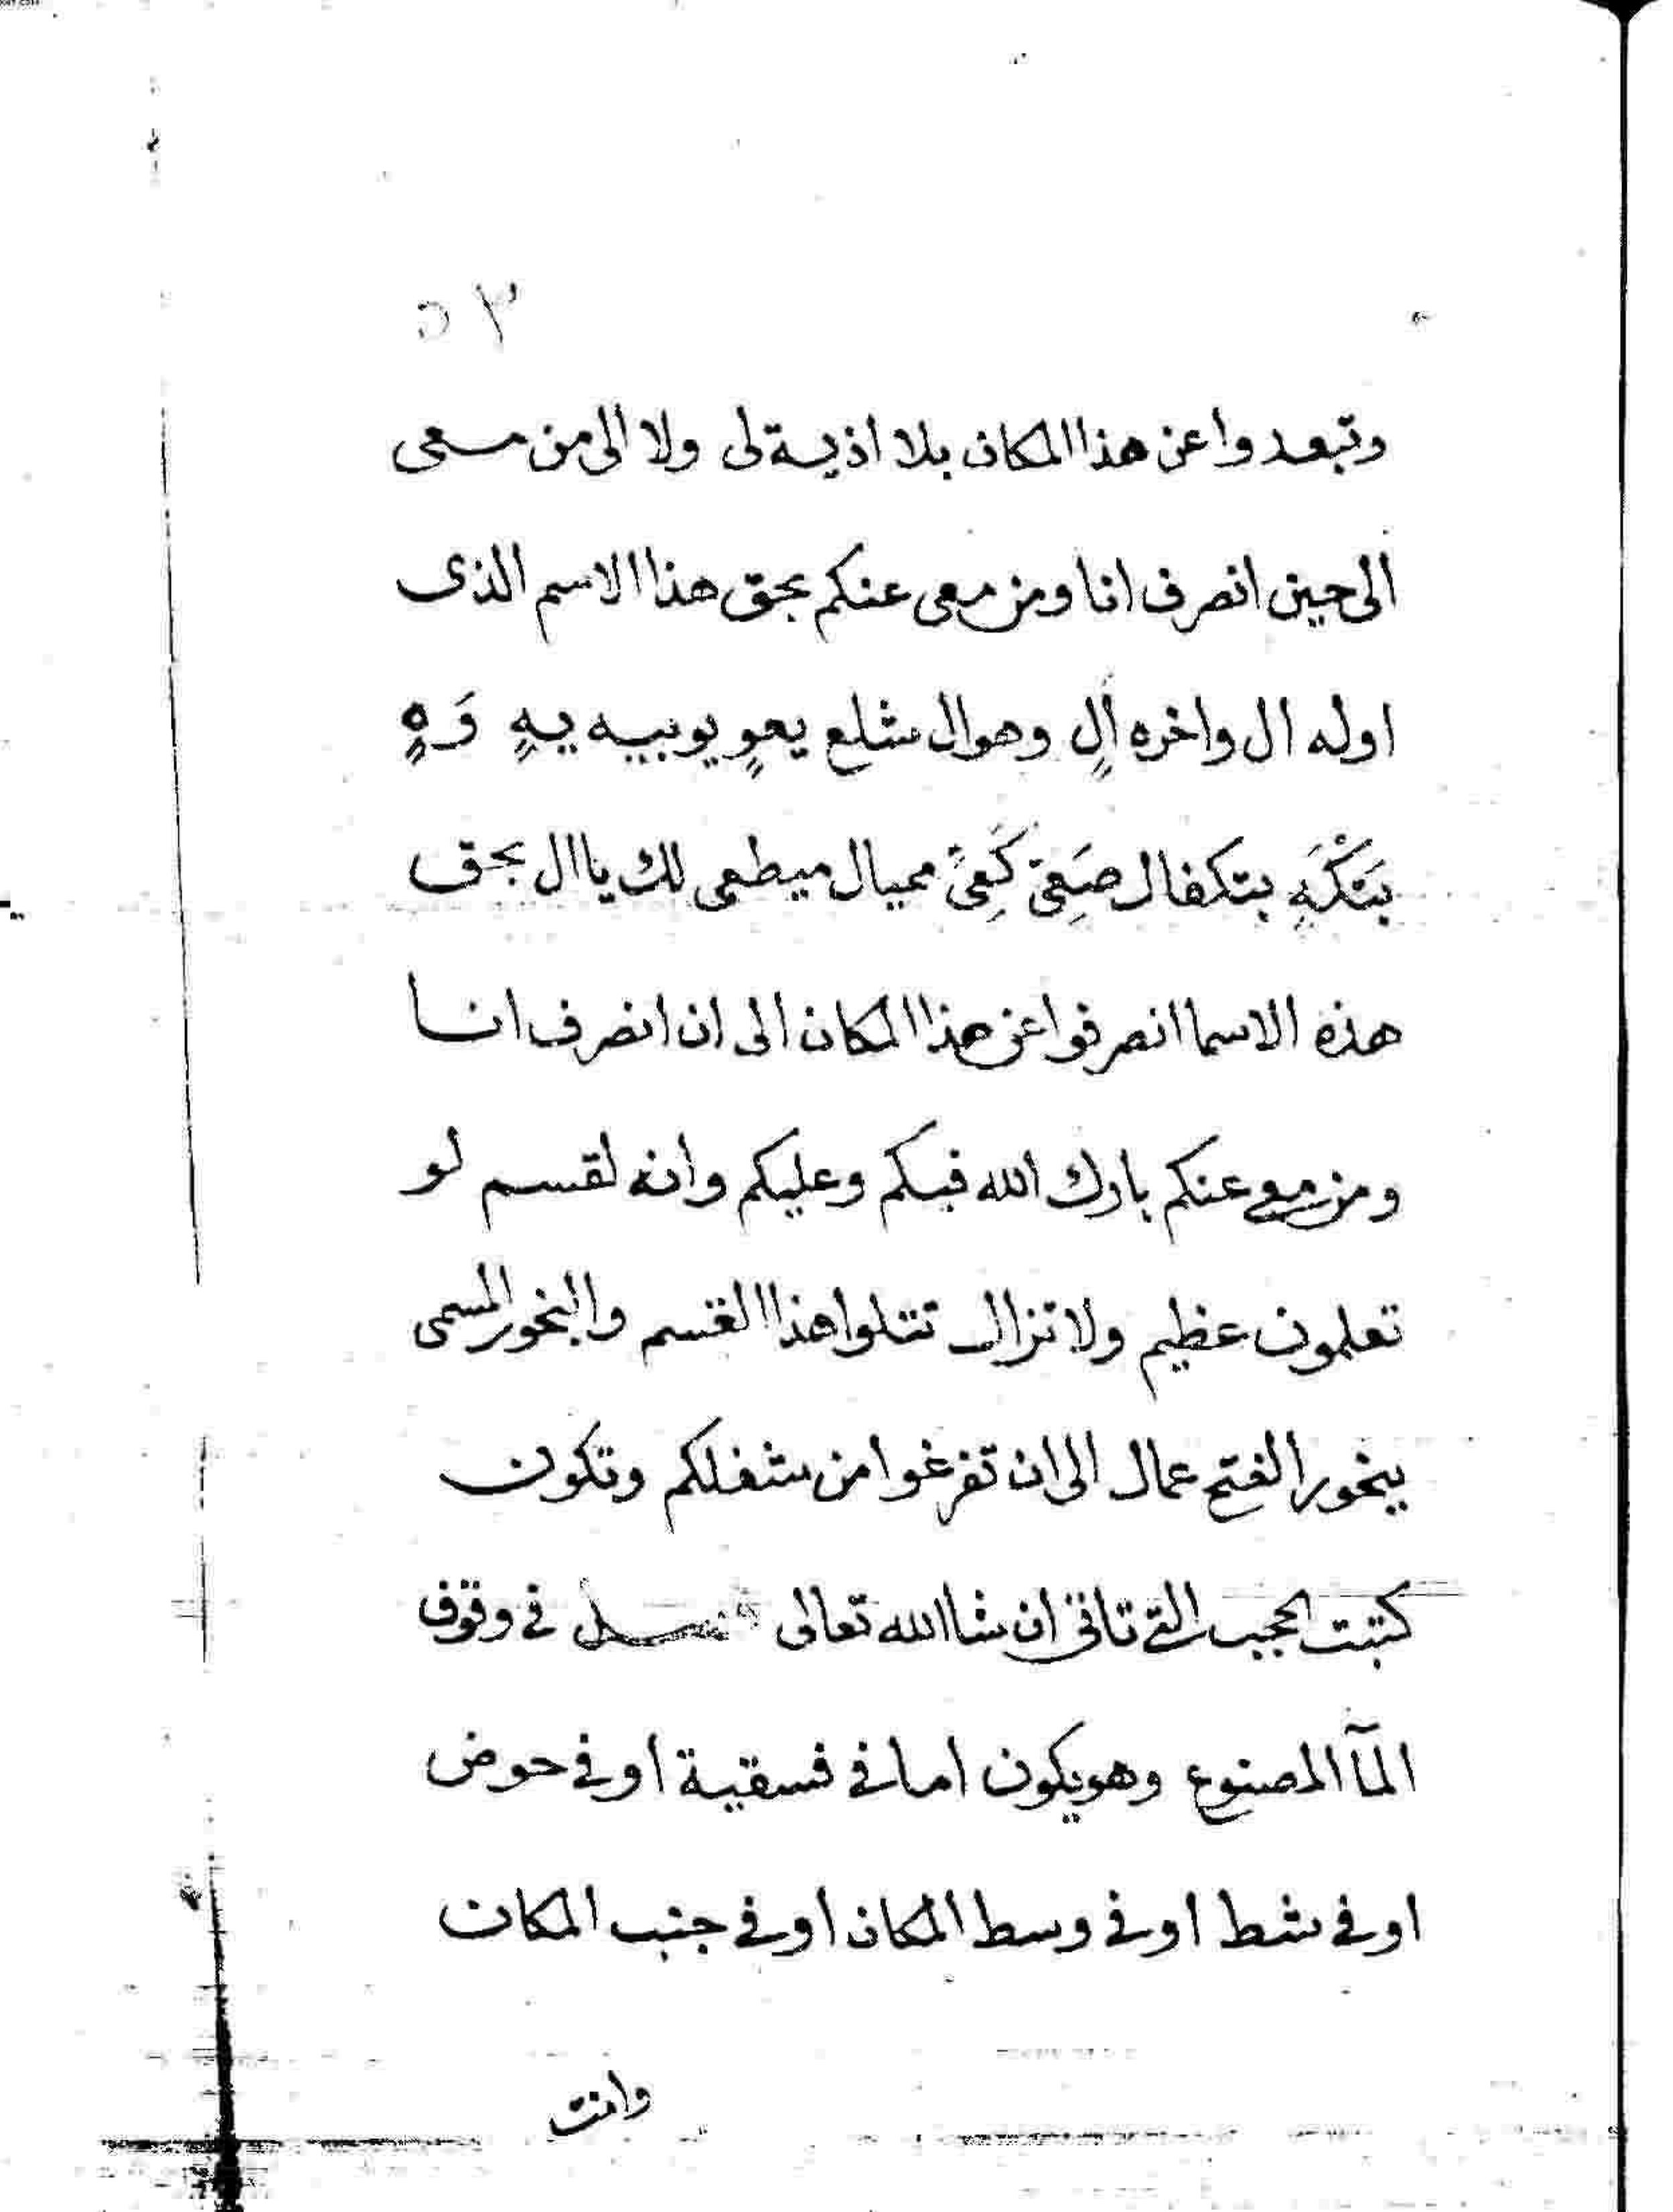 ٥٣
وتبعدوا عن هذا المكان بلا اذية لى ولا الى من معى
الى حين انصرف انا ومن معى عنكم بحق هذا الاسم الذى
اوله ال واخره الٍ وهو ال شلع يعوٍ يوبيه يهٍ وَهٍ
بَتَكْهَ بتكفال صَعِى كَعِىً مميال ميطعى لك يا ال بحق
هذه الاسما انصرفوا عن هذا المكان الى ان انصرف انا
ومن معى عنكم بارك الله فيكم وعليكم وانه لقسم لو
تعلمون عظيم ولا تزال تتلوا هذا القسم والبخور المسمى
ببخور الفتح عمال الى ان تفرغوا من شغلكم وتكون
كتبت الحجب التى تاتى ان شا الله تعالى فى وقوف
المآ المصنوع وهو يكون اما فى فسقية او فى حوض
او فى شط او فى وسط المكان او فى جنب المكان
وانت